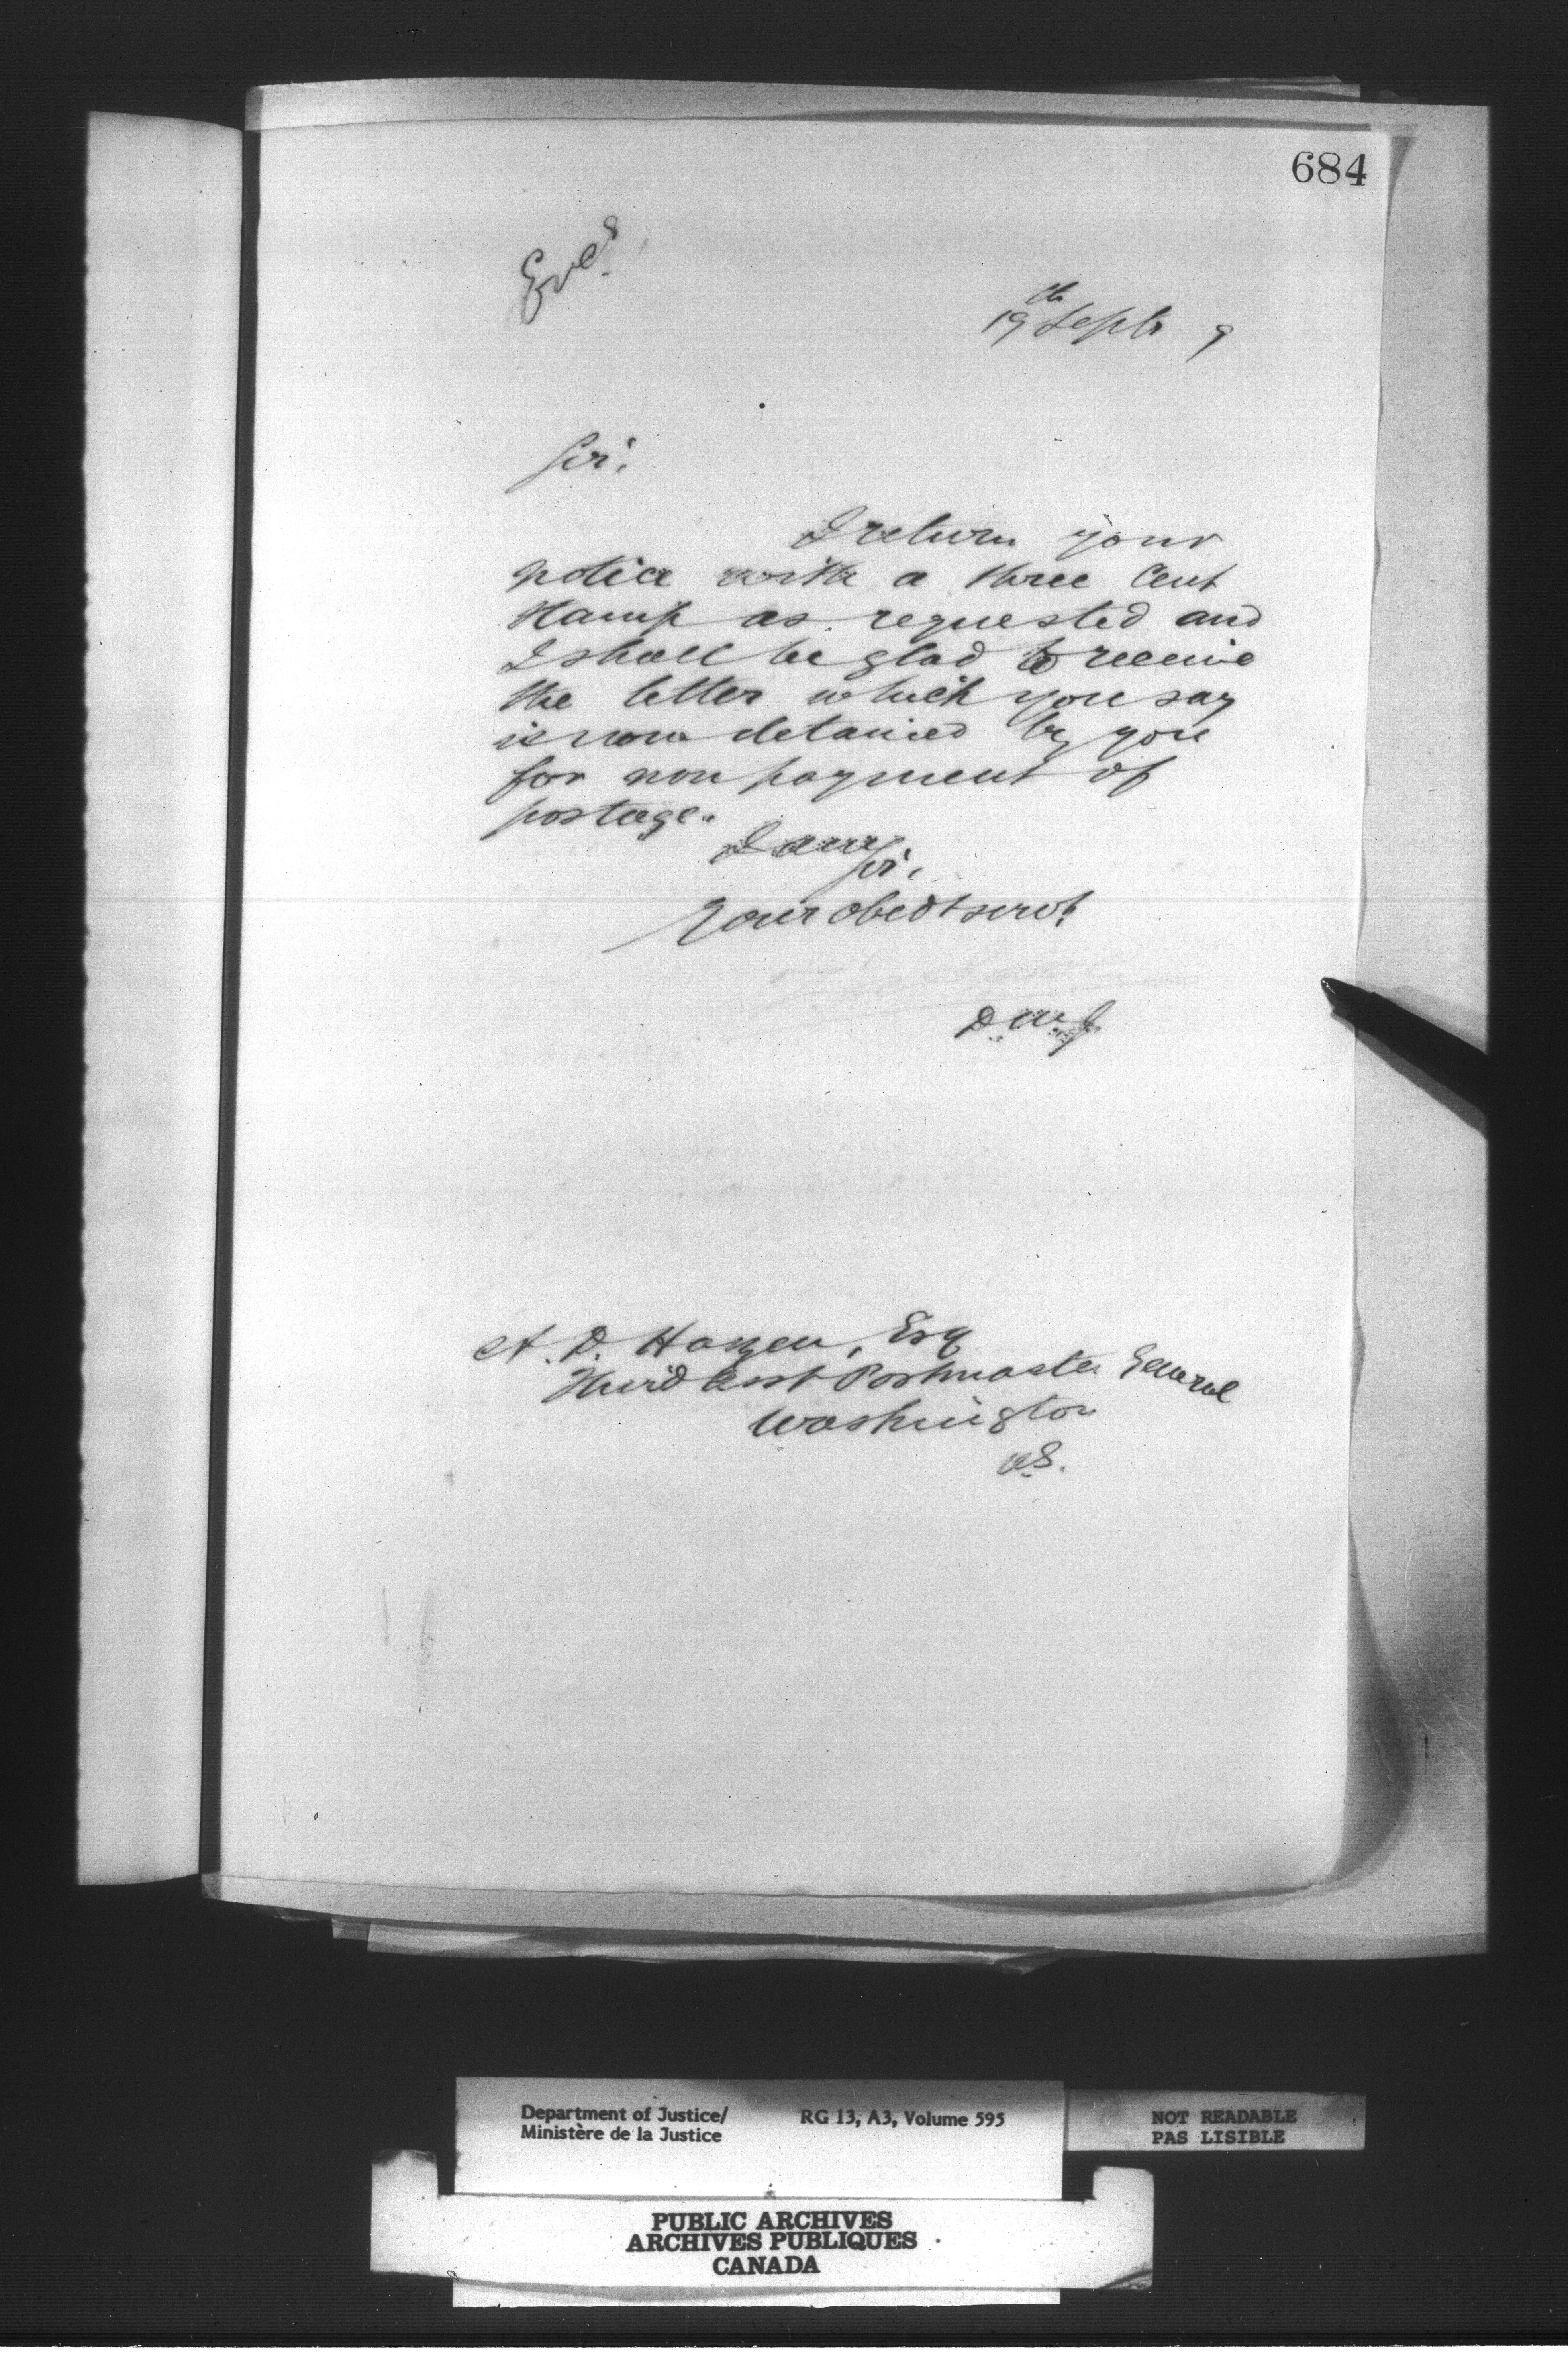 684
Encs
19th Septr 9
Sir,
I return your
notice with a three Cent
stamp as requested and
I shall be glad to receive
the letter which you say
is now detained by you
for non payment of
postage.
I am
Sir,
Your obedt servt
D M J
A. D. Hazen, Esq
Third Asst Postmaster General
Washington
U.S.
Department of Justice/
Ministère de la Justice
RG 13, A3, Volume 595
NOT READABLE
PAS LISIBLE
PUBLIC ARCHIVES
ARCHIVES PUBLIQUES
CANADA